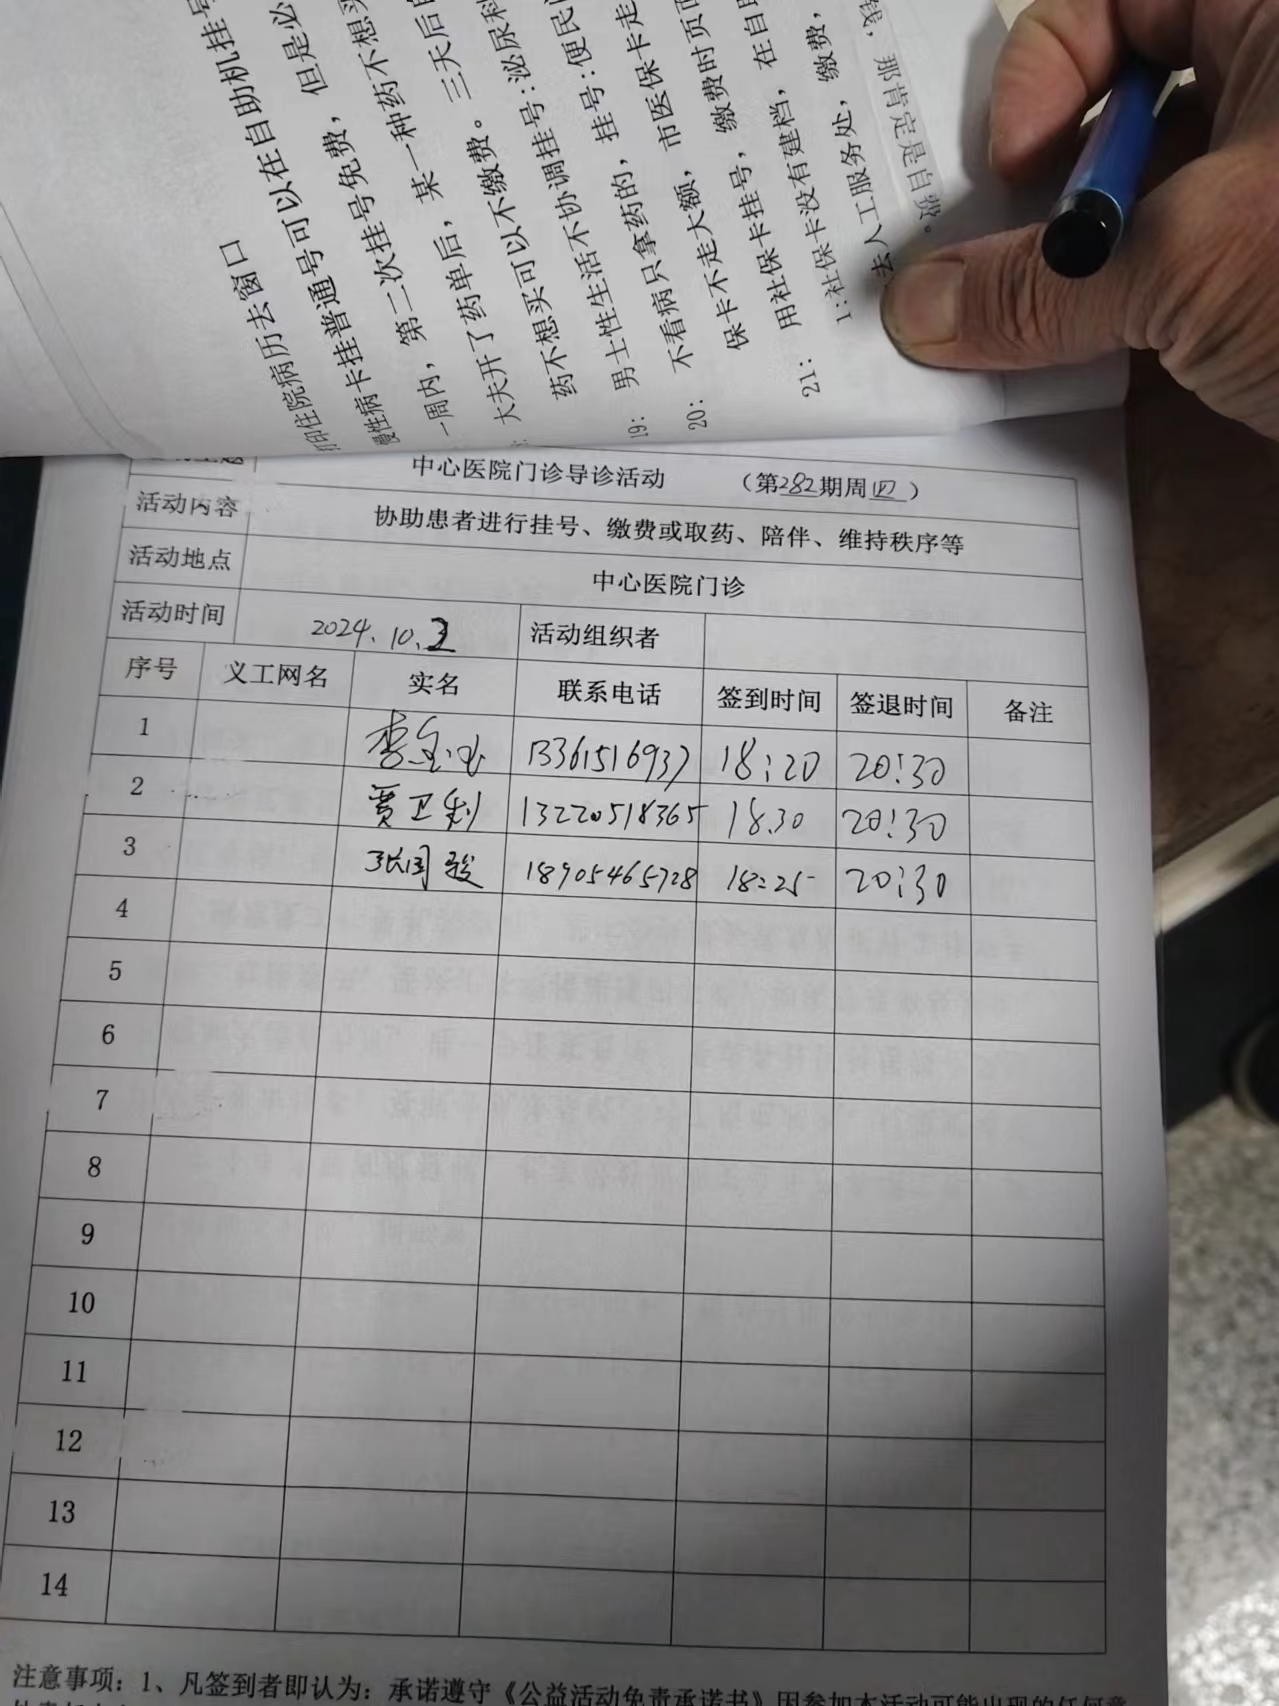 印住院病历去窗口
慢性病卡挂普通号可以在自助机挂号
一周内，第二次挂号免费，但是必
大夫开了药单后，某一种药不想买
药不想买可以不缴费。三天后
19： 男士性生活不协调挂号:泌尿科
20： 不看病只拿药的，挂号:便民
保卡不走大额，市医保卡走
21： 用社保卡挂号，缴费时页
1:社保卡没有建档，在自助
去人工服务处，缴费，
那肯定是自费。
中心医院门诊导诊活动 （第282期周四）
活动内容 协助患者进行挂号、缴费或取药、陪伴、维持秩序等
活动地点 中心医院门诊
活动时间 2024.10.3 活动组织者
序号 义工网名 实名 联系电话 签到时间 签退时间 备注
1 13361516937 18:20 20:30
2 贾卫利 13220518365 18.30 20:30
3 张国骏 18905465728 18:25 20:30
4
5
6
7
8
9
10
11
12
13
14
注意事项：1、凡签到者即认为：承诺遵守《公益活动免责承诺书》因参加本活动可能出现的任何意